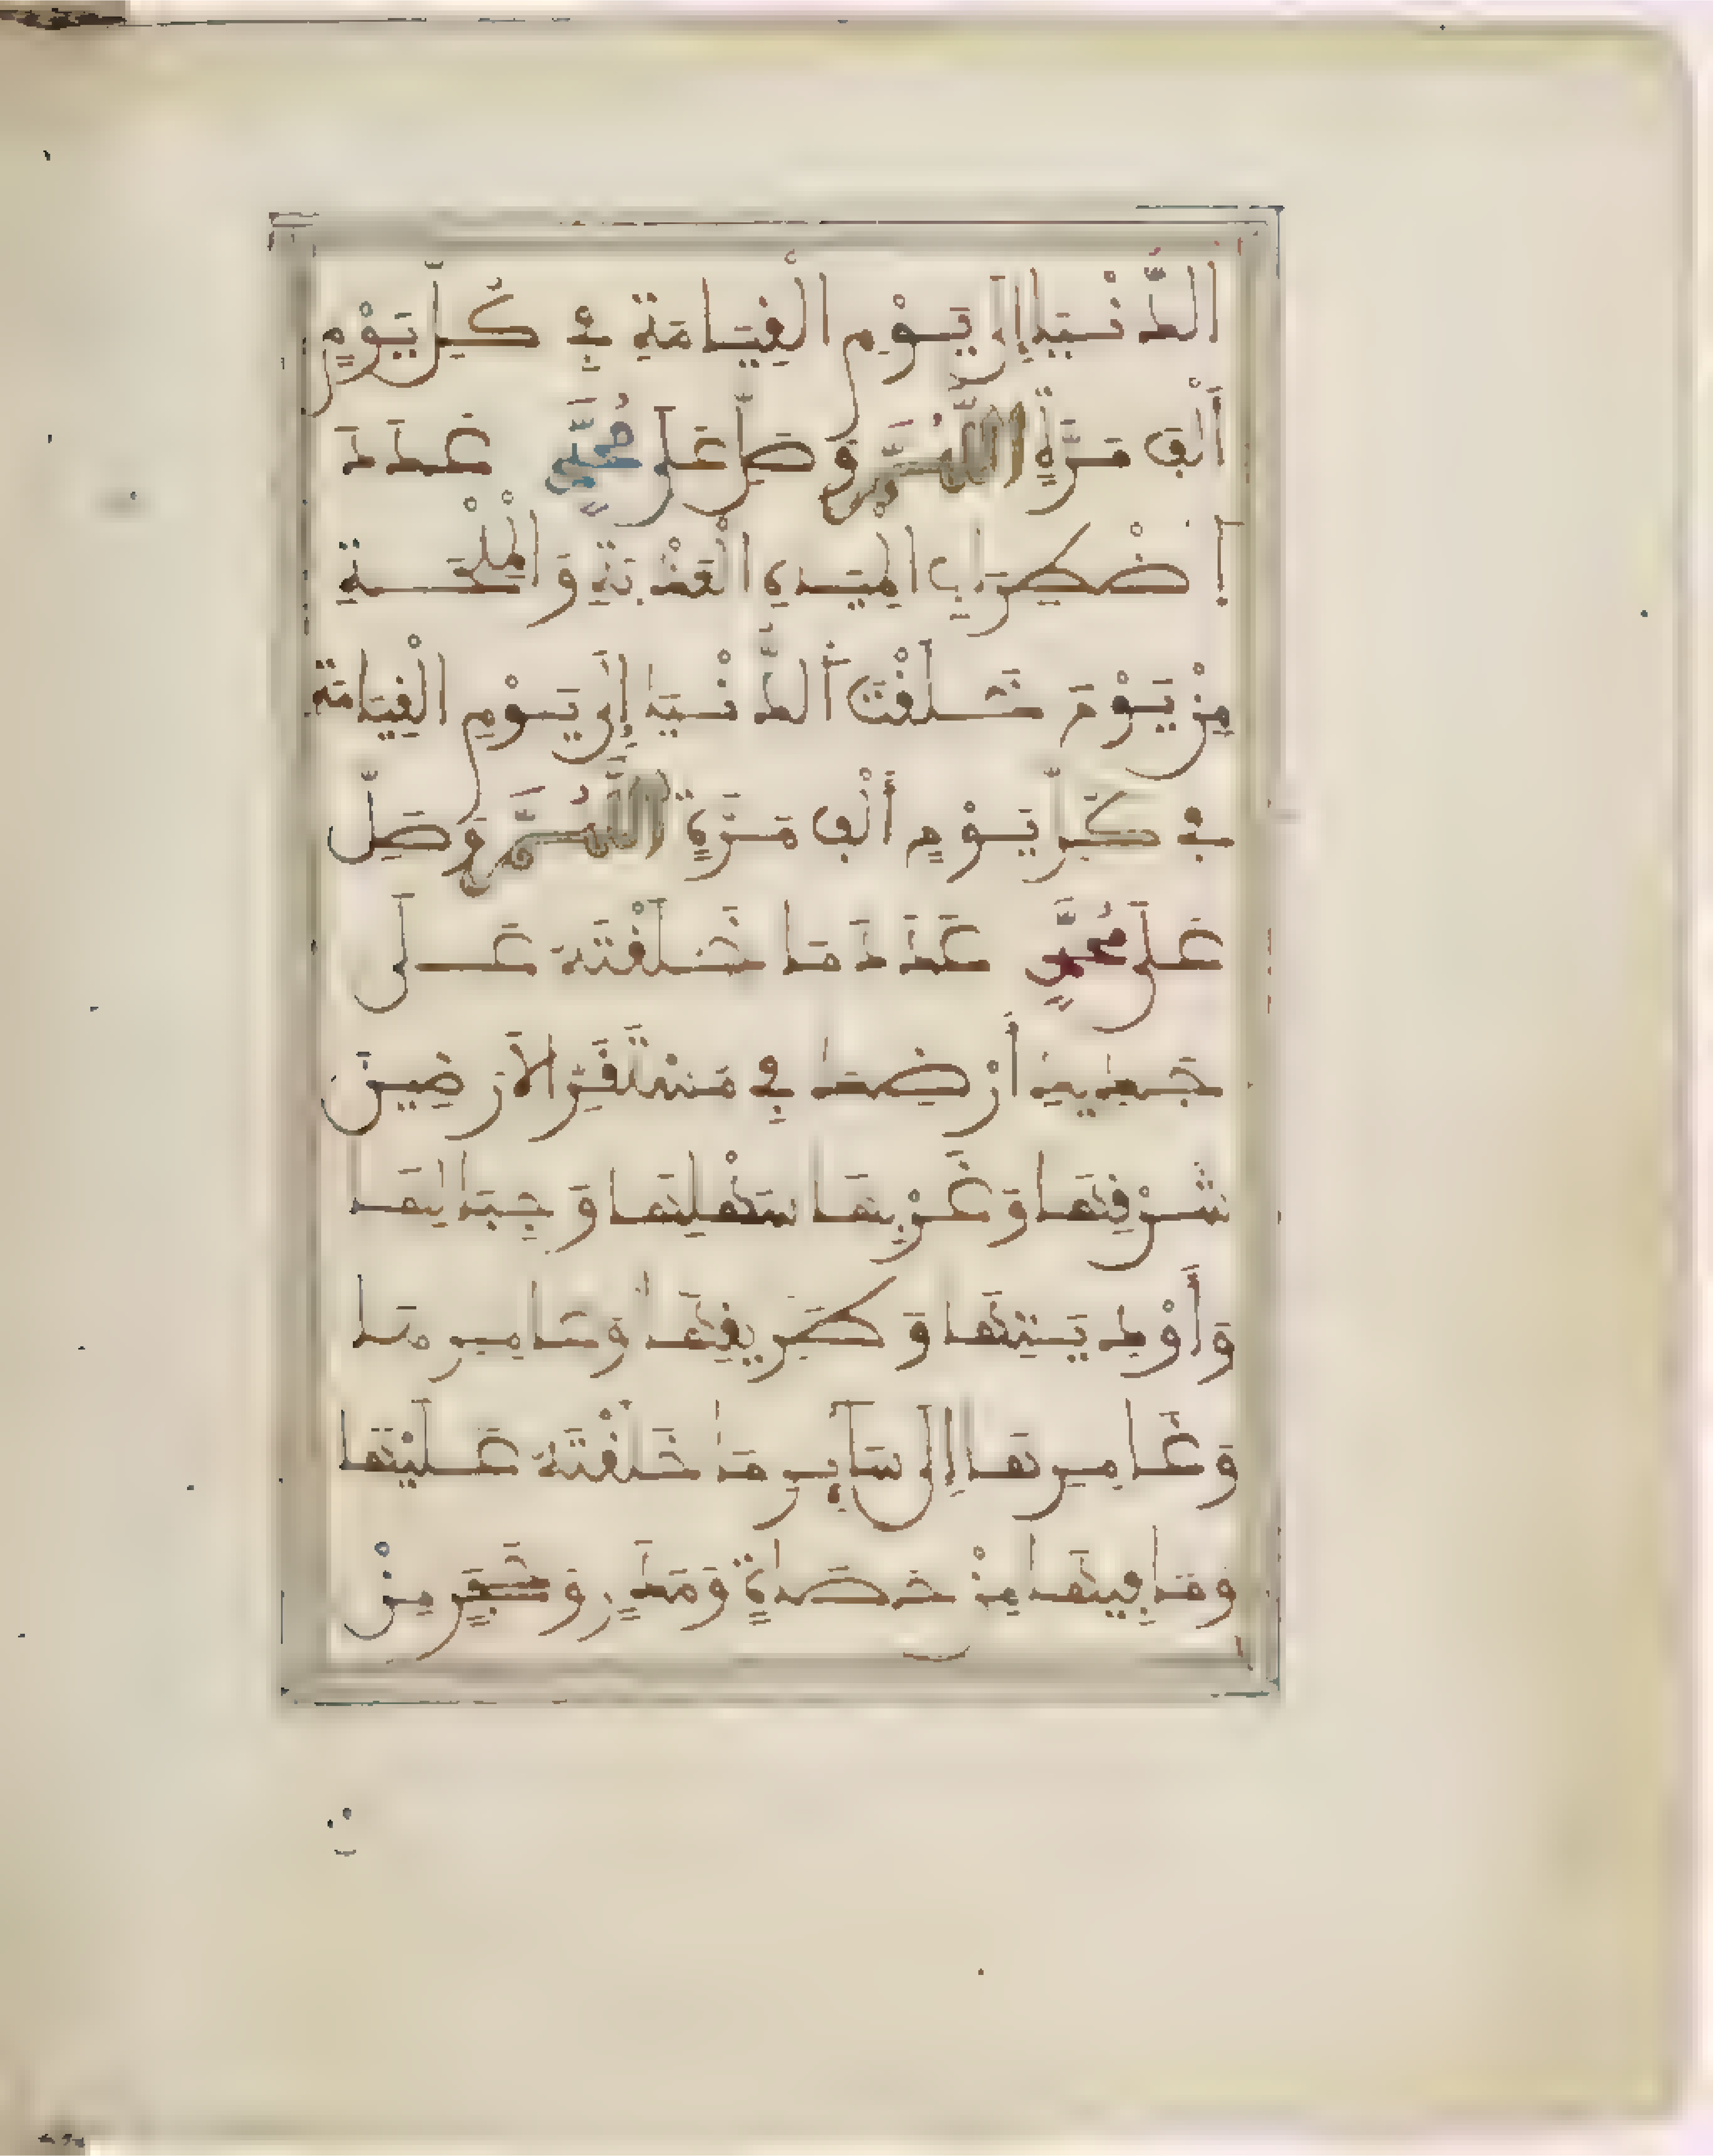 الدُّنْيَا إِلَى يَوْمِ الْقِيَامَةِ فِي كُلِّ يَوْمٍ
أَلْفَ مَرَّةٍ اللَّهُمَّ وَصَلِّ عَلَى مُحَمَّدٍ عَدَدَ
اضْطِرَابِ الْمِيَاهِ الْعَذْبَةِ وَالْمِلْحَةِ
مِنْ يَوْمَ خَلَقْتَ الدُّنْيَا إِلَى يَوْمِ الْقِيَامَةِ
فِي كُلِّ يَوْمٍ أَلْفَ مَرَّةٍ اللَّهُمَّ وَصَلِّ
عَلَى مُحَمَّدٍ عَدَدَ مَا خَلَقْتَهُ عَلَى
جَدِيدِ أَرْضِكَ فِي مُسْتَقَرِّ الْأَرَضِينَ
شَرْقِهَا وَغَرْبِهَا سَهْلِهَا وَجِبَالِهَا
وَأَوْدِيَتِهَا وَطَرِيقِهَا وَعَامِرِهَا
وَغَامِرِهَا إِلَى سَائِرِ مَا خَلَقْتَهُ عَلَيْهَا
وَمَا فِيهَا مِنْ حَصَاةٍ وَمَدَرٍ وَحَجَرٍ مِنْ